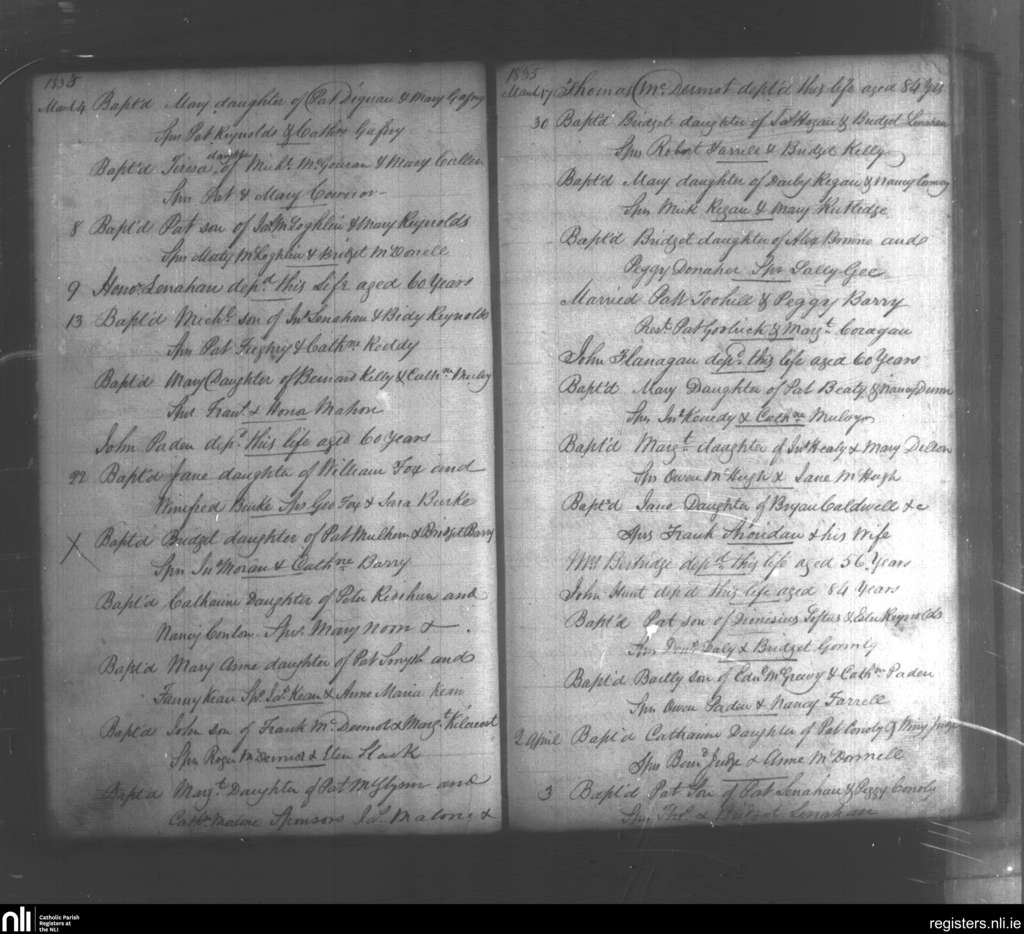 1835
March 4 Bapt'd Mary daughter of Pat Dignan & Mary Gafny
Spn Pat Reynolds & Cathne Gafny
Bapt'd Teresa daughter of Michl McGowran & Mary Cullen
Spn Pat & Mary
8 Bapt'd Pat son of Jas McLoghlin & Mary Reynolds
Spn Matty McLoghlin & Bridget McDonell
9 Honor Lenahan depd this Life aged 60 Years
13 Bapt'd Michl son of Jno Lenahan & Bidy Reynolds
Spn Pat Feghry & Cathne Keddy
Bapt'd Mary Daughter of Bernard Kelly & Cathne
Spn Frans & Hona Mahon
John Paden depd this life aged 60 years
22 Bapt'd Jane daughter of William Fox and
Winifred Burke Spn Geo Fox & Sara Burke
X Bapt'd Bridget daughter of Pat Mulhern & Bridget Barry
Spn Jno Moran & Cathne Barry
Bapt'd Catharine Daughter of Peter Kershun and
Nancy Conlon Spn Mary Noon & .
Bapt'd Mary Anne daughter of Pat Smyth and
Fanny Kean Sps Jas Kean & Anne Maria Kean
Bapt'd John son of Frank McDermot & Margt
Spn Roger McDermot & Elen Flack
Bapt'd Margt Daughter of Pat McGlynn and
Cathne Malone Sponsors Jas Malone &
1835
March 17 Thomas McDermot dept'd this life aged 84 Yrs
30 Bapt'd Bridget daughter of Jas Hogan & Bridget Lenahan
Spn Robert Farrell & Bridget Kelly
Bapt'd Mary daughter of Darby Regan & Nancy
Spn Mick Regan & Mary Rutledge
Bapt'd Bridget daughter of Alex and
Peggy Donaher Spn Sally Gee
Married Patt Toohill & Peggy Barry
Prest Pat & Margt Coragan
John Flanagan depd this life aged 60 Years
Bapt'd Mary Daughter of Pat Beaty & Nancy Dunn
Spn Jno Kenedy & Cathne Mulvy
Bapt'd Margt daughter of Jno Healy & Mary Dillon
Spn Owen McHugh & Jane McHugh
Bapt'd Jane Daughter of Bryan Caldwell & c
Spns Frank Sheridan & his Wife
Mrs depd this life aged 56 Years
John Hunt dep'd this life aged 84 Years
Bapt'd Pat son of Dionesius Loftus & Elen Reynolds
Spn Denis Daly & Bridget Gormly
Bapt'd Bartly son of Edwd McGreevy & Cathne Paden
Spn Owen Paden & Nancy Farrell
2 April Bapt'd Catharine Daughter of Pat Conoly & Mary Judge
Spns Bernd Judge & Anne McDonnell
3 Bapt'd Pat Son of Pat Lenahan & Peggy Conoly
Spn Thos & Bridget Lenahan
nli Catholic Parish
Registers at
the NLI
registers.nli.ie